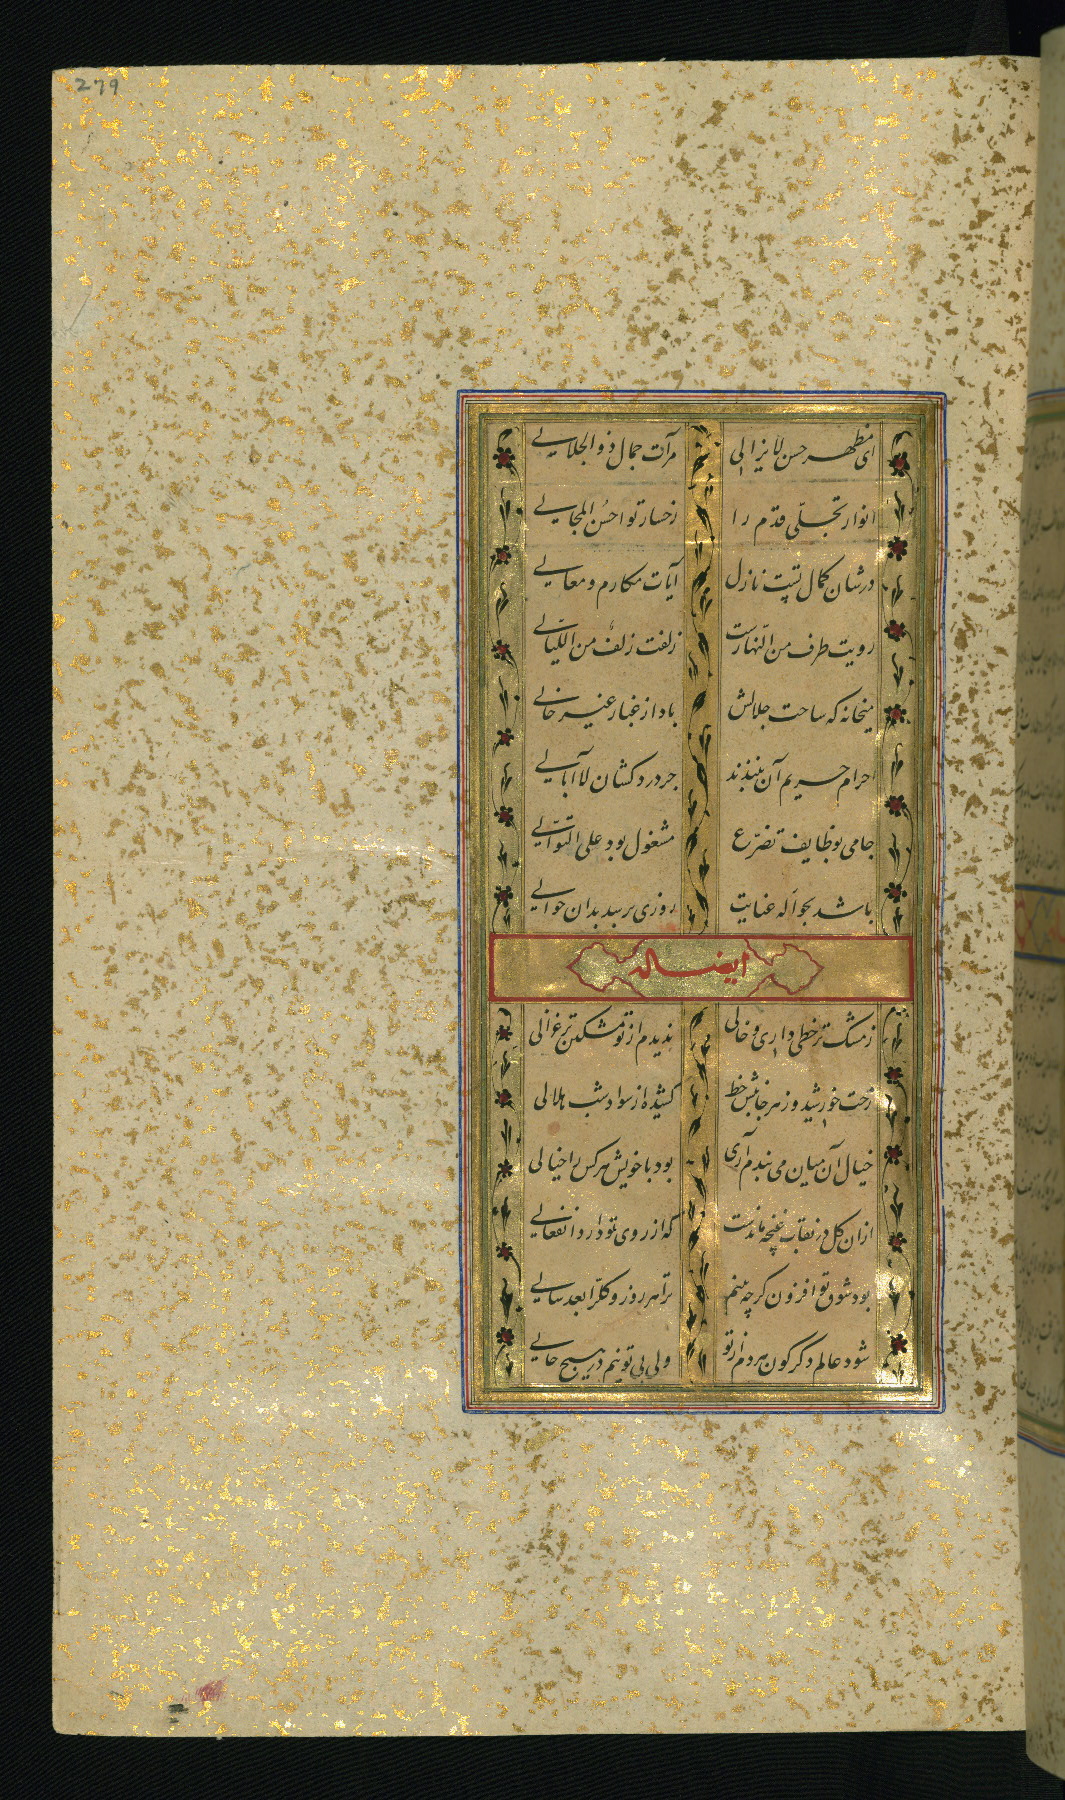 279
ای مظهر حسن لایزالی مرآت جمال ذو الجلالی
انوار تجلّی قدم را رخسار تو احسن المجالی
در شان کمال تست نازل آیات مکارم و معالی
رویت طرف من النهارست زلفت زلف من اللیالی
میخانه که ساحت جلالش باد از غبار غیر خالی
احرام حریم آن نبندند جز درد کشان لاابالی
جامی بوظایف تضرّع مشغول بود علی التوالی
باشد بحواله عنایت روزی برسد بدان حوالی
ایضا له
ز مشک تر خطی داری و خالی ندیدم از تو مشکین تر غزالی
رخت خورشید و زهر جانبش خط کشیده از سواد شب هلالی
خیال آن میان می بندم آری بود با خویش هر کس را خیالی
از ان گل در نقاب غنچه ماندست که از روی تو دارد انفعالی
بود شوق تو افزون گرچه بینم ترا هر روز و کلّا بعد سالی
شود عالم دگرگون هر دم از تو ولی بی تو نیم در هیچ حالی